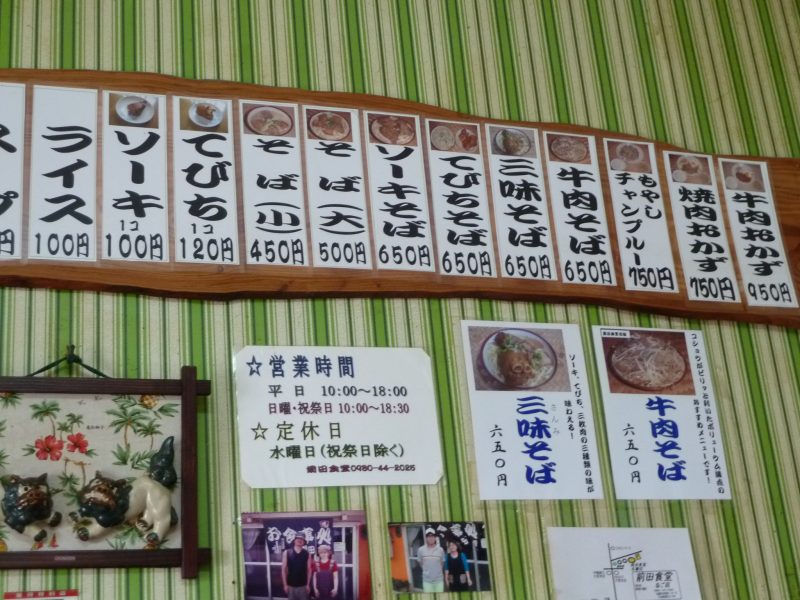 牛肉おかず
950円
焼肉おかず
750円
もやし
チャンプルー
750円
牛肉そば
650円
三味そば
650円
てびちそば
650円
ソーキそば
650円
そば(大)
500円
そば(小)
450円
てびち
1コ
120円
ソーキ
1コ
100円
ライス
100円
プ
円
☆営業時間
平日 10:00〜18:00
日曜・祝祭日 10:00〜18:30
☆定休日
水曜日(祝祭日除く)
前田食堂0980-44-2025
コショウがピリッと利いたボリューム満点の
おすすめメニューです!
牛肉そば
六五〇円
ソーキ、てびち、三枚肉の三種類の味が
味わえる!
さんみ
三味そば
六五〇円
前田食堂